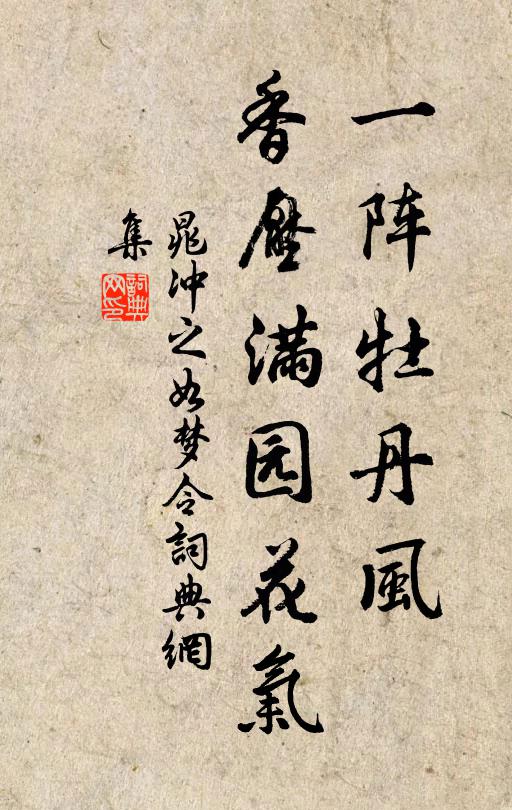 一阵牡丹風
香壓满园花氣
晁冲之如梦令詞典網
集
詞典
网印